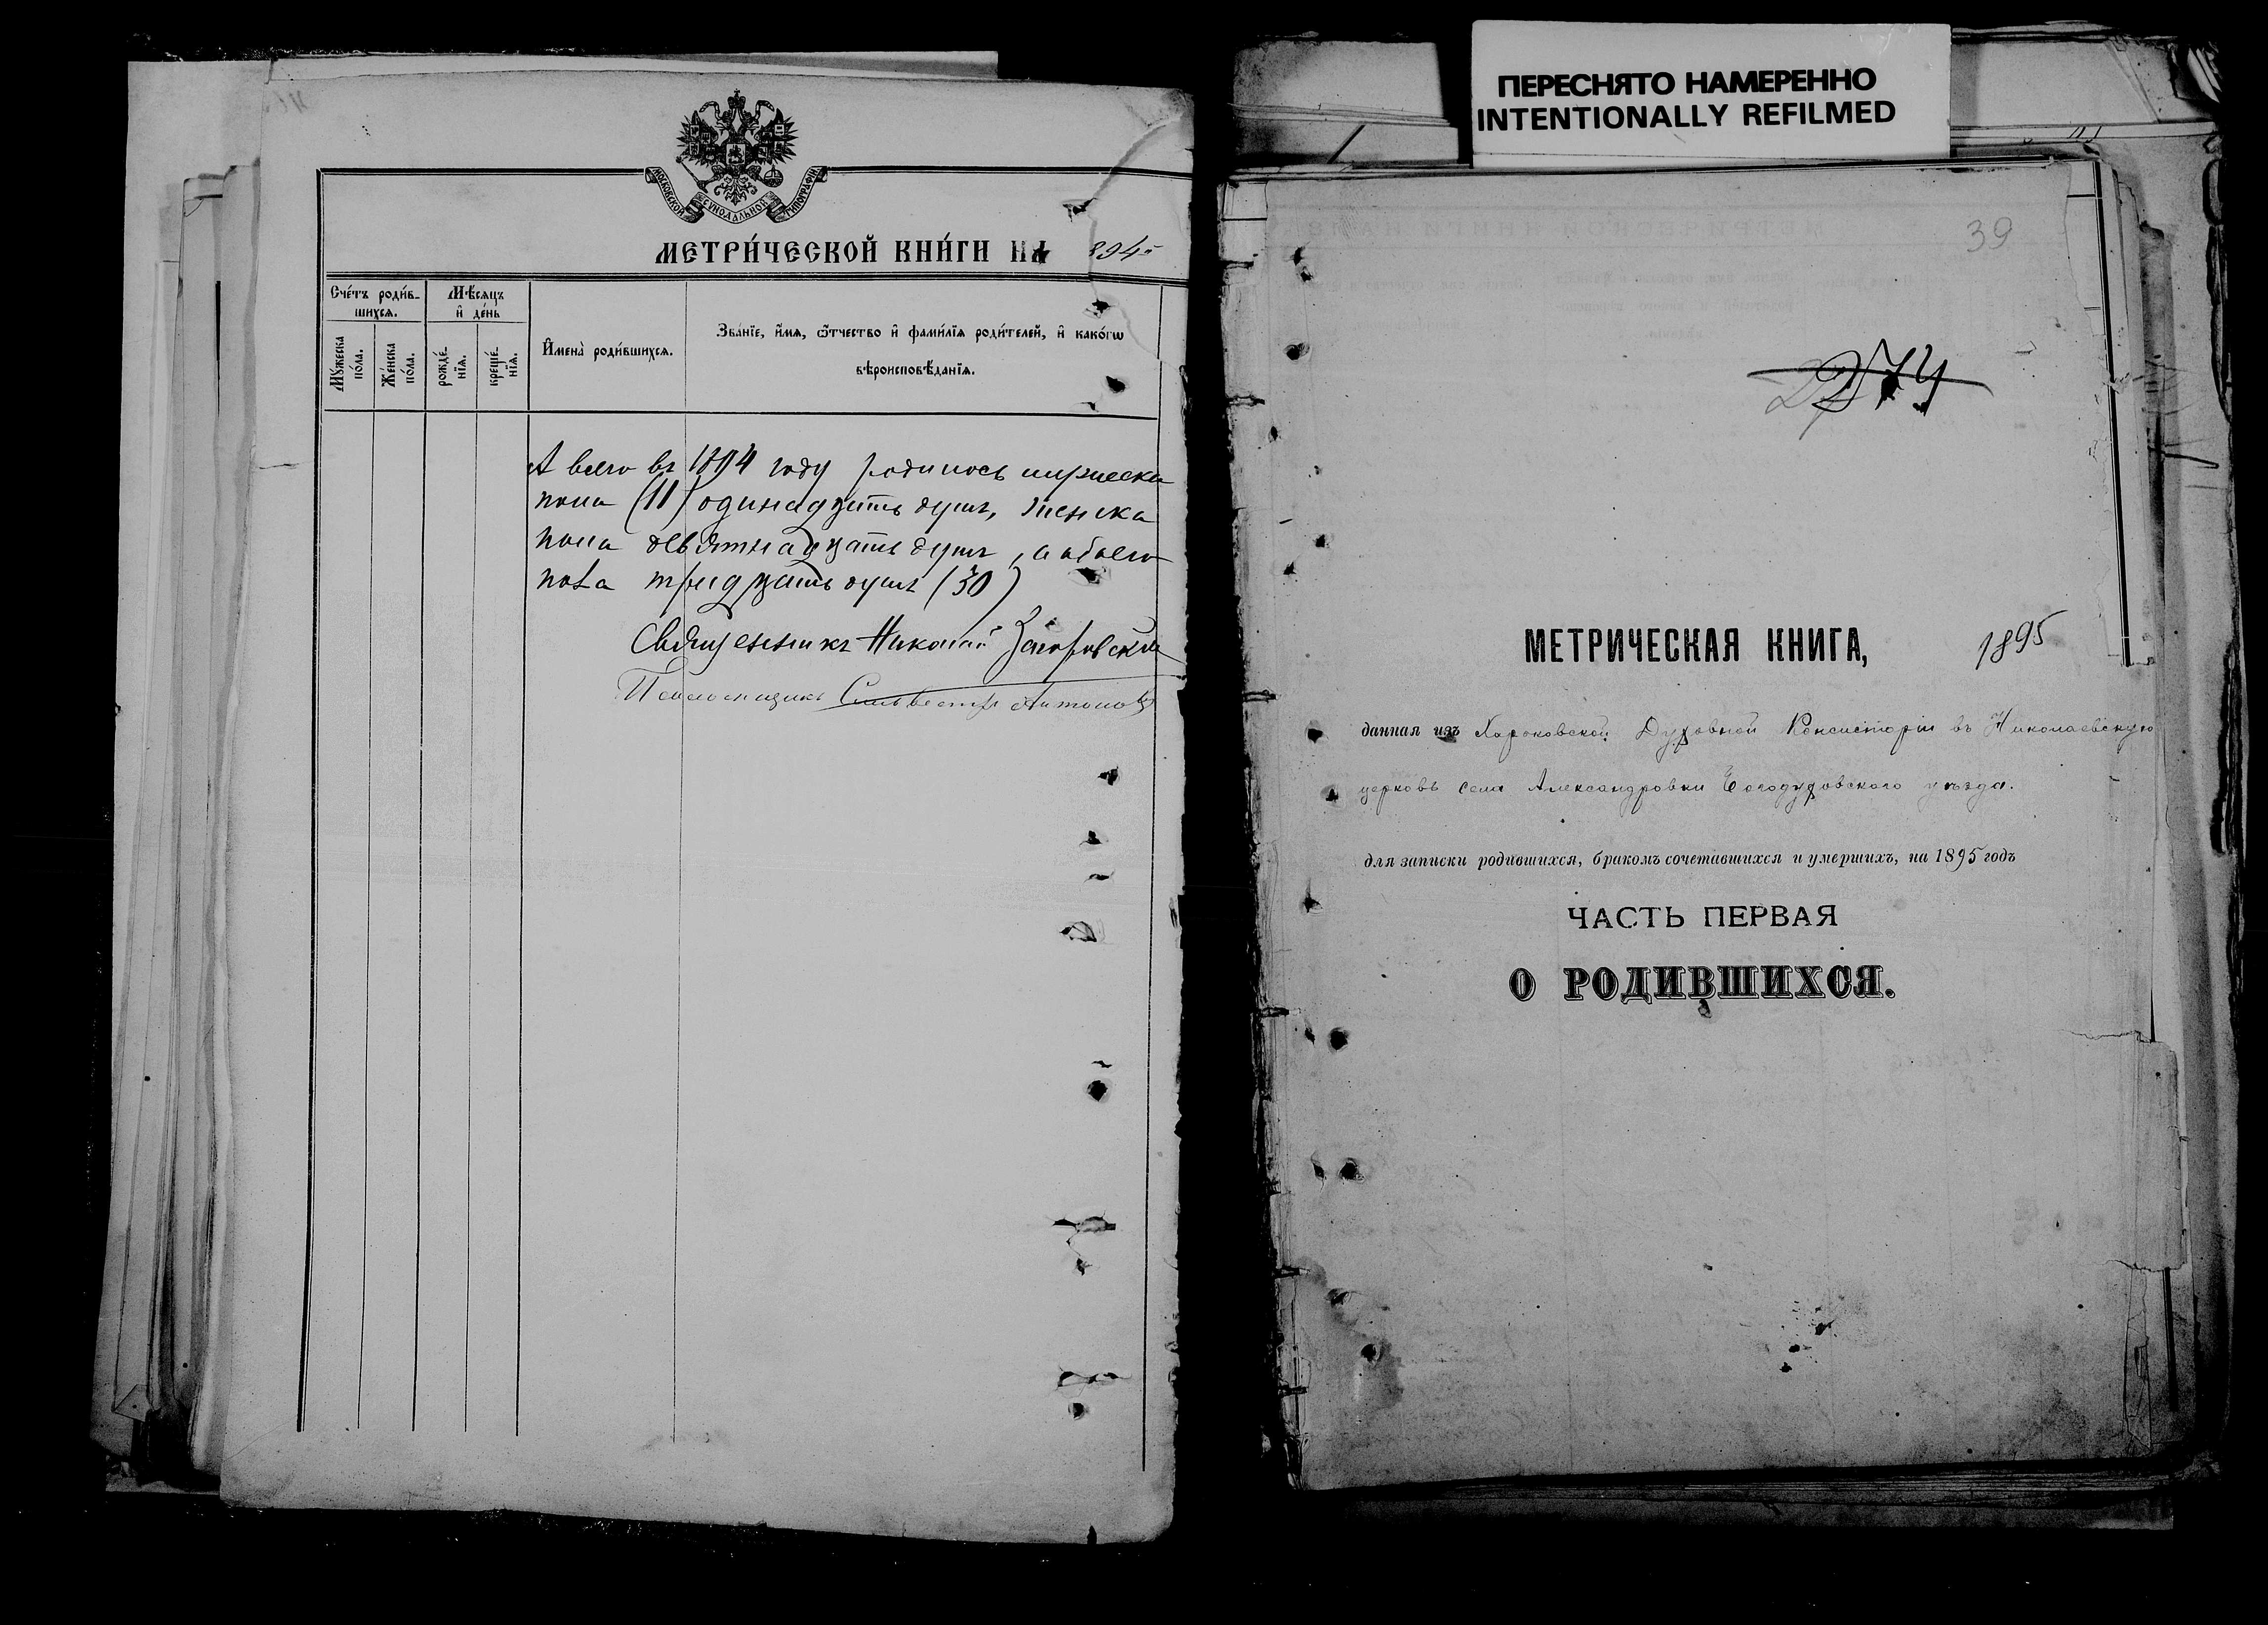 МОСКОВСКОЙ СѴНОДАЛЬНОЙ ТИПОГРАФІИ
МЕТРИ́ЧЕСКОЙ КНИ́ГИ НА 894
Сче́тъ роди́в-
шихся.
Мѣ́сяцъ
и҆ де́нь
Му́жеска
по́ла.
Же́нска
по́ла.
рожде́-
нїя.
креще́-
нїя.
И҆мена̀ роди́вшихся.
Зва́нїе, и҆́мя, ѻ҆́тчество и҆ фами́лїя роди́телей, и҆ како́гѡ
вѣроисповѣ́данїя.
А всего въ 1894 году родилось мужеска
пола (11) одинадцать душъ, женска
пола девятнадцать душъ, а обоего
пола тридцать душъ (30)
Священникъ Николай Загоровскій
Псаломщикъ Сильвестръ Антоновъ
ПЕРЕСНЯТО НАМЕРЕННО
INTENTIONALLY REFILMED
39
274
МЕТРИЧЕСКАЯ КНИГА, 1895
данная изъ Харьковской Духовной Консисторіи въ Николаевскую
церковь села Александровки Богодуховского уѣзда.
для записки родившихся, бракомъ сочетавшихся и умершихъ, на 1895 годъ
ЧАСТЬ ПЕРВАЯ
О РОДИВШИХСЯ.